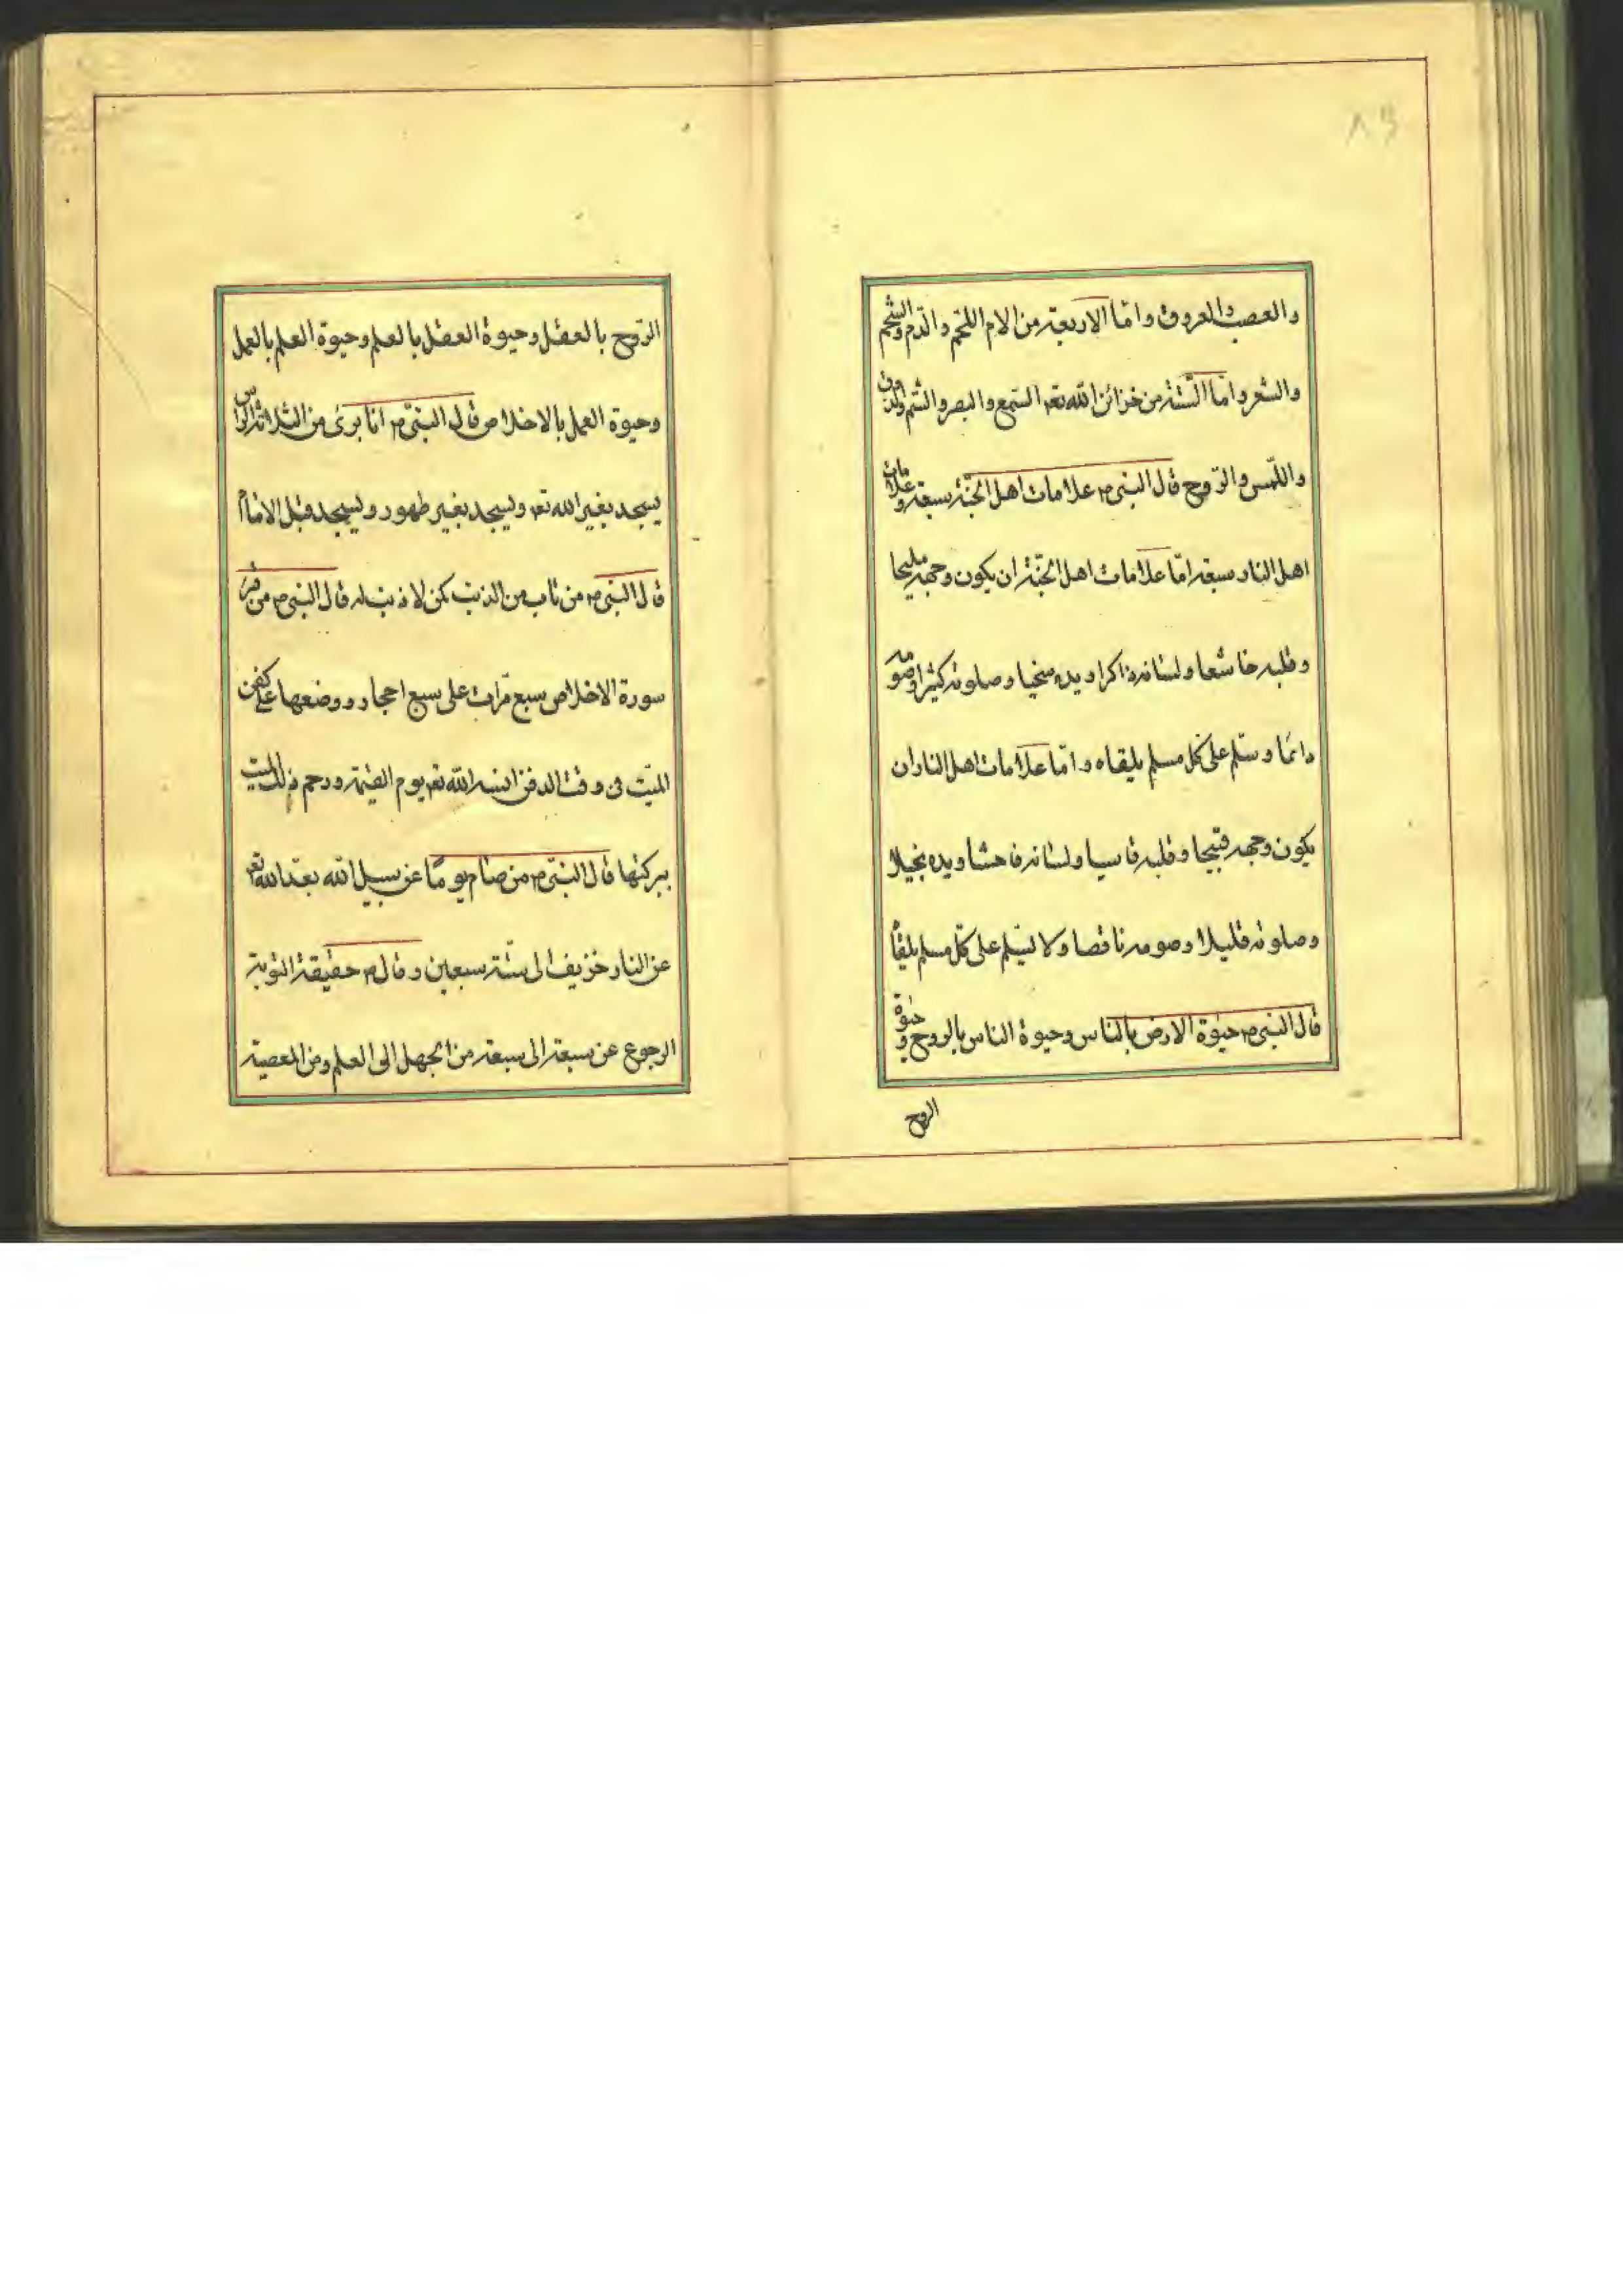 ٨٩
والعصب والعروق واما الاربعة من الام اللحم والدم والشحم
والشعر واما الستة من خزائن الله تعم السمع والبصر والشم والذوق
واللمس والروح قال النبى م علامات اهل الجنة سبعة وعلامات
اهل النار سبعة اما علامات اهل الجنة ان يكون وجهه مليحا
وقلبه خاشعا ولسانه ذاكرا ويده سخيا وصلوته كثيرا وصومه
دائما وسلم على كل مسلم يلقاه واما علامات اهل النار ان
يكون وجهه قبيحا وقلبه قاسيا ولسانه فاحشا ويده بخيلا
وصلوته قليلا وصومه ناقصا ولا ليسلم على كل مسلم يلقا
قال النبى م حيوة الارض بالناس وحيوة الناس بالروح وحيوة
الروح
الروح بالعقل وحيوة العقل بالعلم وحيوة العلم بالعمل
وحيوة العمل بالاخلاص قال النبى م انا برئ من الثلاثة
يسجد بغير الله تعم ويسجد بغير طهور ويسجد قبل الامام
قال النبى م من تاب من الذنب كمن لا ذنب له قال النبى م من
سورة الاخلاص سبع مرات على سبع احجار ووضعها على كفن
الميت فى وقت الدفن انسه الله تعم يوم القيمة ورحم ذلك الميت
ببركتها قال النبى م من صام يوما عن سبيل الله بعد الله تعم
عن النار خزيف الى ستة سبعين وقال م حقيقة التوبة
الرجوع عن سبعة الى سبعة من الجهل الى العلم ومن المعصية